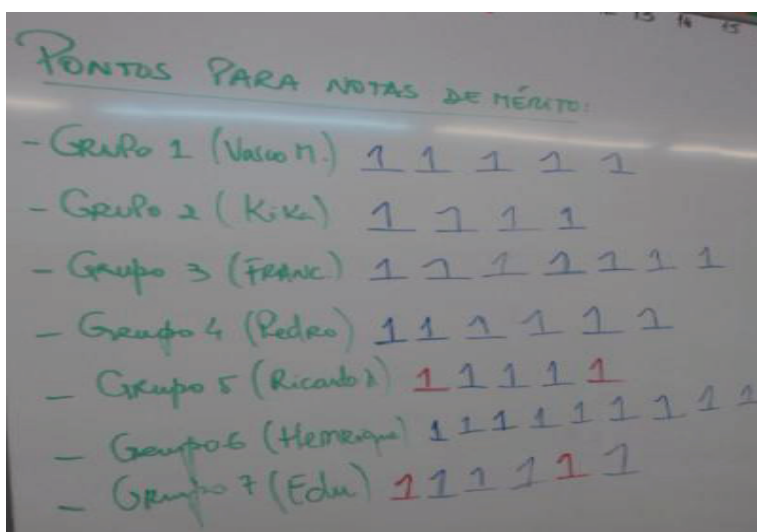 13 14 15
PONTOS PARA NOTAS DE MÉRITO:
- GRUPO 1 (Vasco M.) 1 1 1 1 1
- GRUPO 2 (Kika) 1 1 1 1
- Grupo 3 (FRANC.) 1 1 1 1 1 1 1
- Grupo 4 (Pedro) 1 1 1 1 1 1
- Grupo 5 (Ricardo) 1 1 1 1 1
- Grupo 6 (Henrique) 1 1 1 1 1 1 1 1 1 1
- Grupo 7 (Edu) 1 1 1 1 1 1